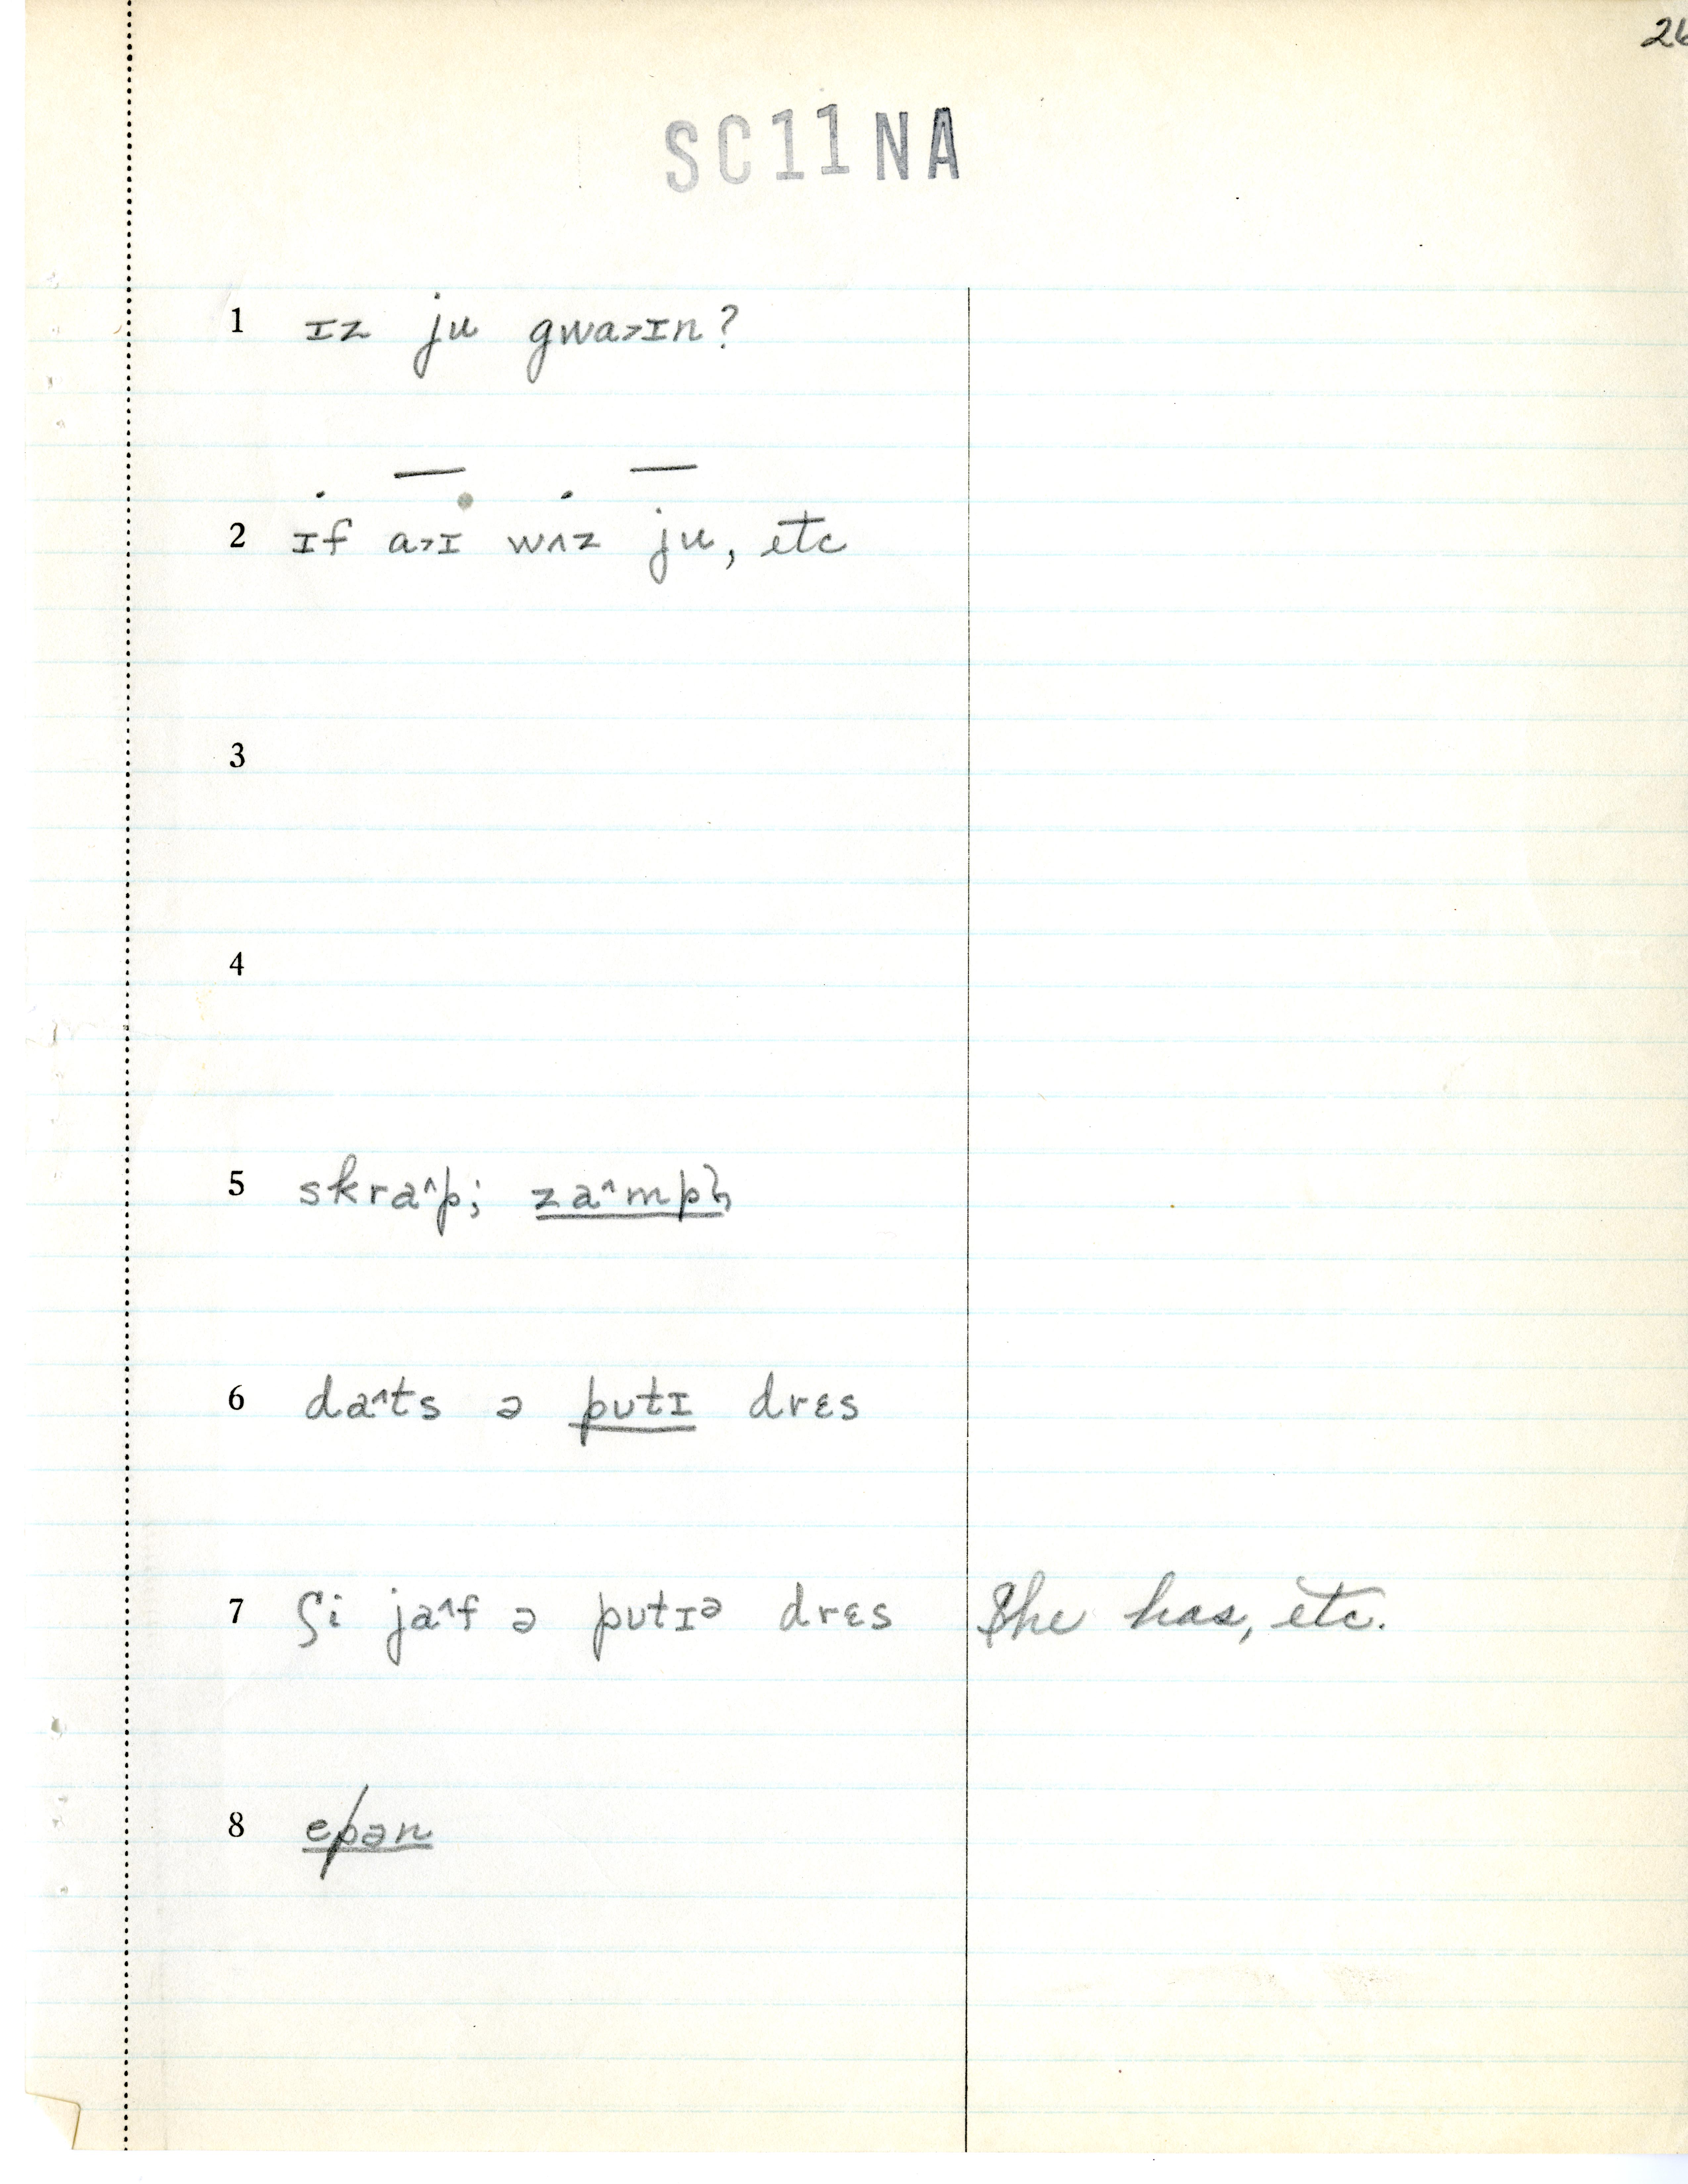 26
SC11NA
1 ɪz ju gwa˃ɪn?
2 ɪf a˃ɪ wʌz ju, etc
3
4
5 skra˄p; za˄mpɦ
6 da˄ts ə putɪ drɛs
7 ʃi ja˄f ə putɪᵊ drɛs She has, etc.
8 epən